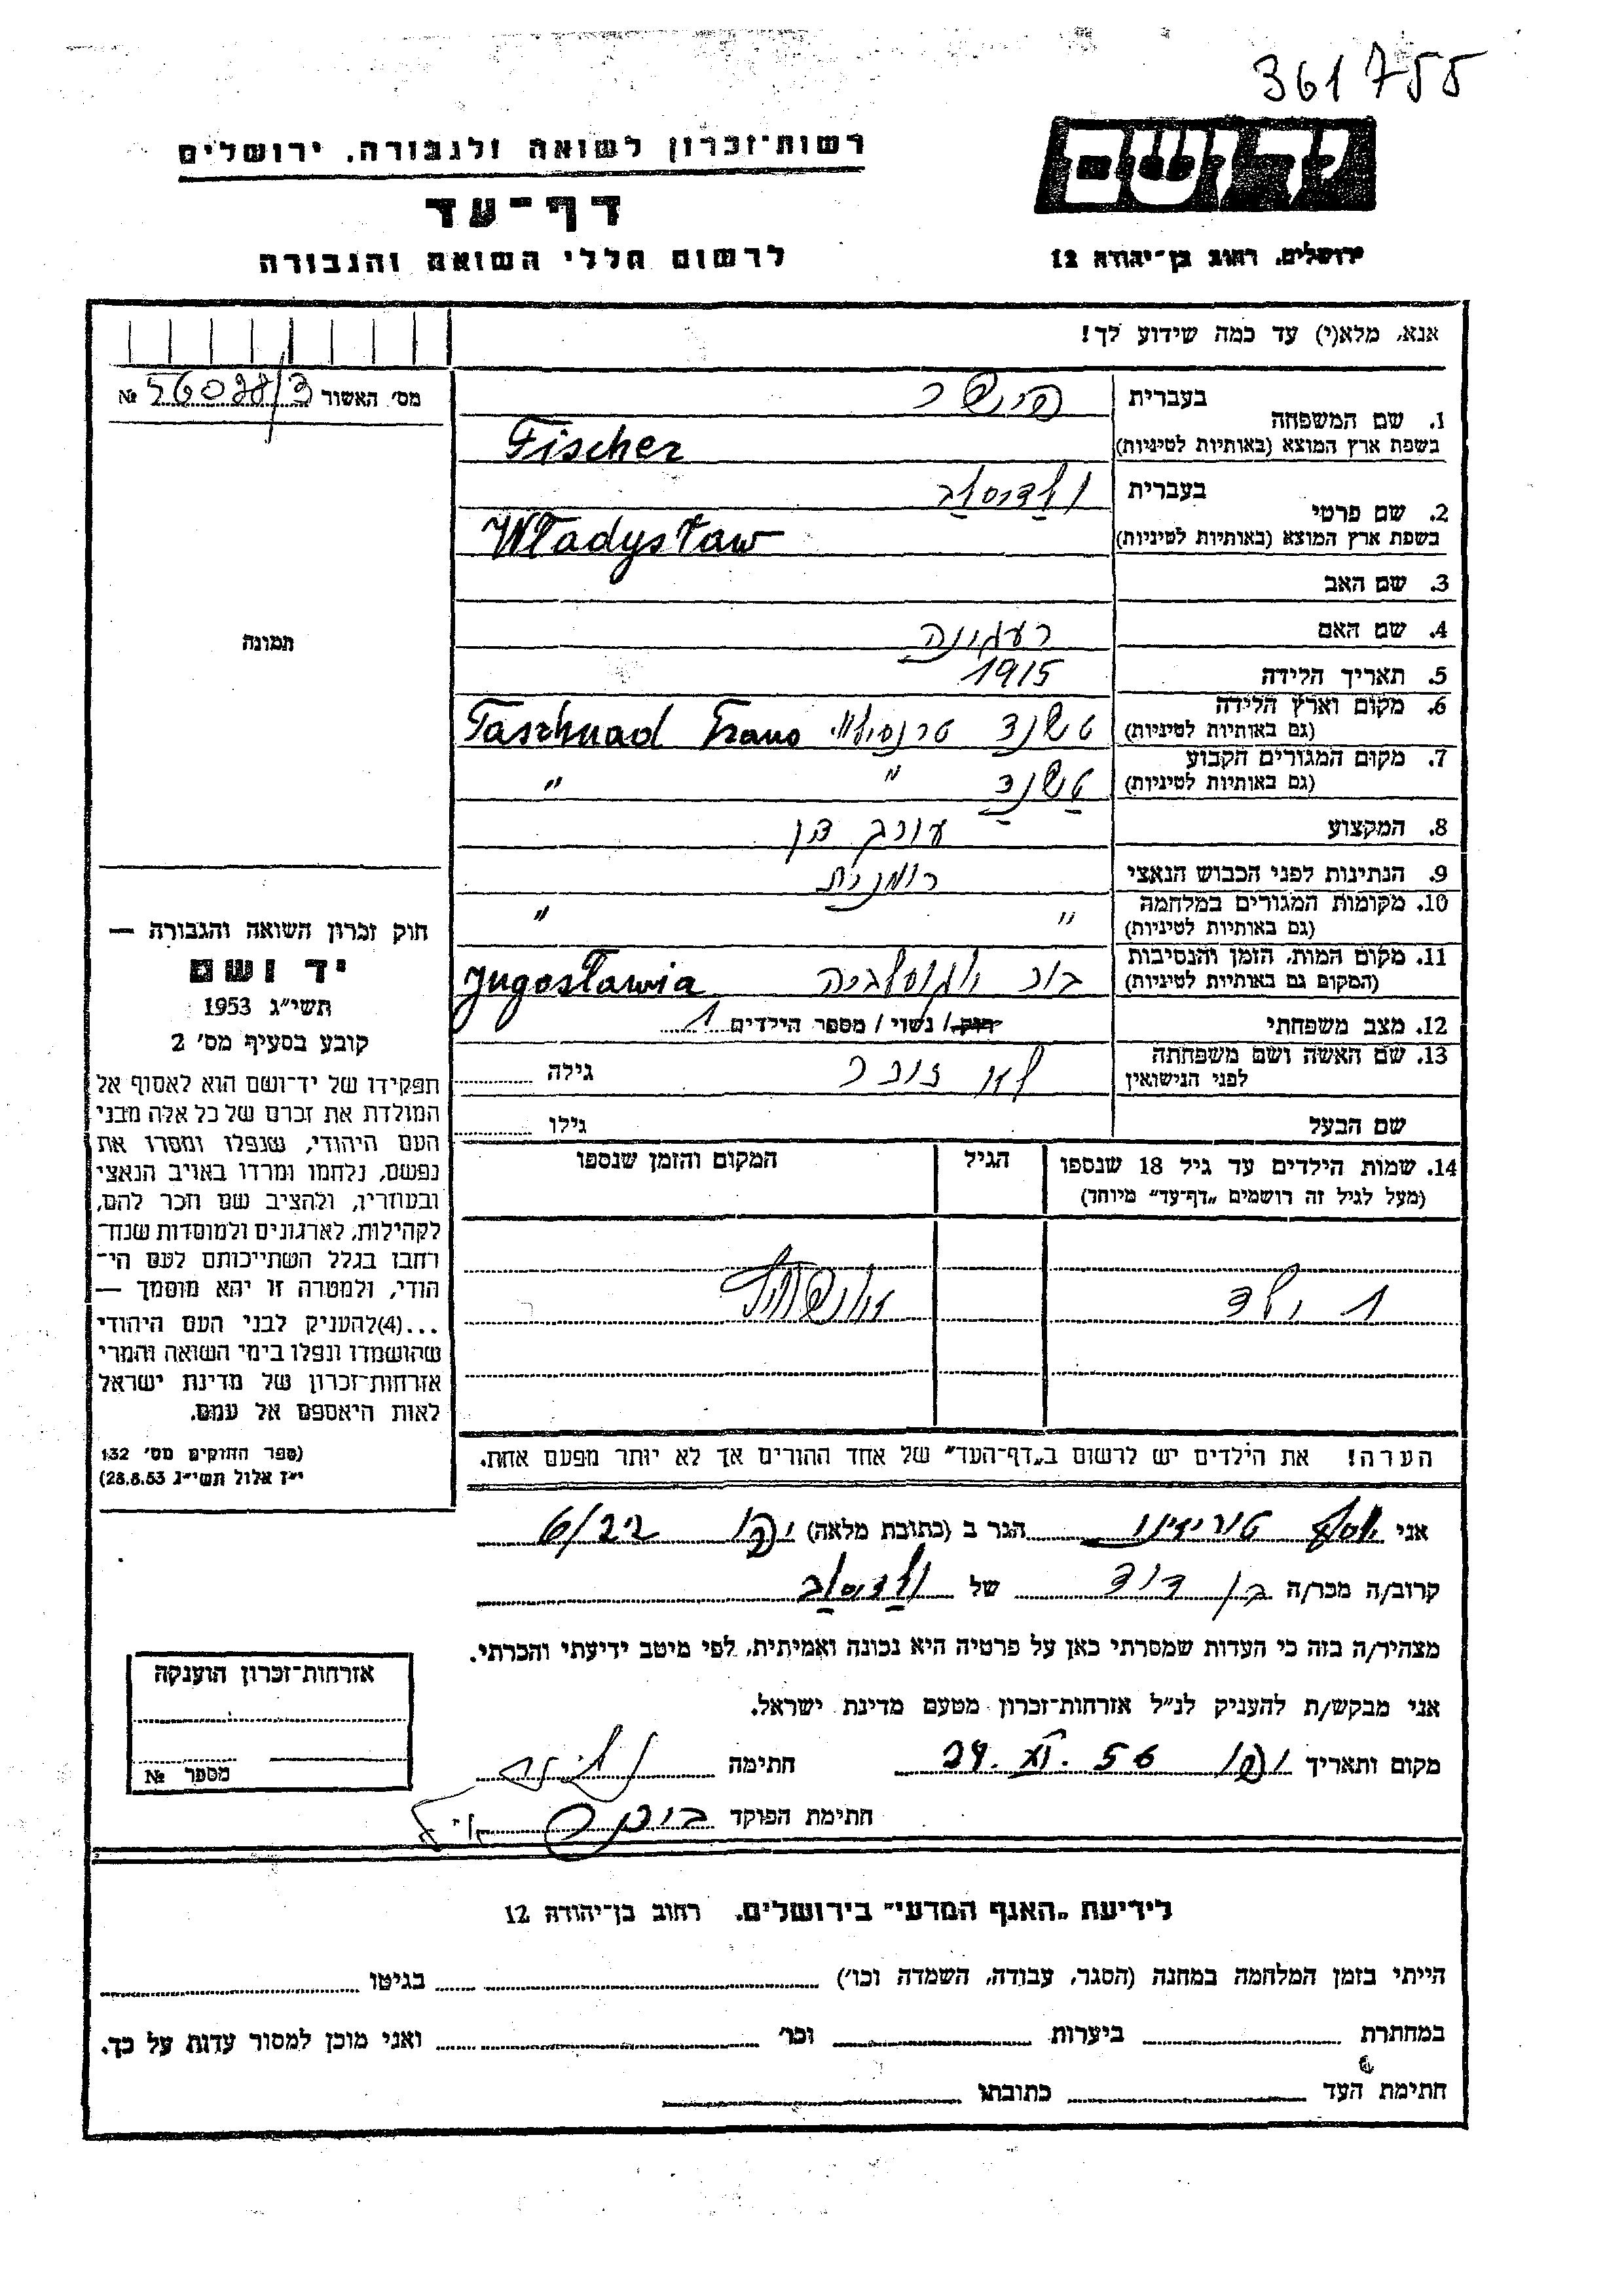 361755
רשות־זכרון לשואה ולגבורה, ירושלים
דף־עד
לרשום חללי השואה והגבורה
יד ושם
ירושלים, רחוב בן־יהודה 12
אנא, מלא(י) עד כמה שידוע לך!
מס׳ האשור № 56098/3
1. שם המשפחה בעברית פישר
בשפת ארץ המוצא (באותיות לטיניות) Fischer
2. שם פרטי בעברית ולדיסלב
בשפת ארץ המוצא (באותיות לטיניות) Władysław
3. שם האב
4. שם האם רעגינה
5. תאריך הלידה 1915
6. מקום וארץ הלידה (גם באותיות לטיניות) טשנד Taschnad Trans
7. מקום המגורים הקבוע (גם באותיות לטיניות) טשנד " "
8. המקצוע
9. הנתינות לפני הכבוש הנאצי רומנית
10. מקומות המגורים במלחמה (גם באותיות לטיניות) " "
11. מקום המות, הזמן והנסיבות (המקום גם באותיות לטיניות) בור יוגוסלביה Jugosławia
12. מצב משפחתי רווק/ נשוי / מספר הילדים 1
13. שם האשה ושם משפחתה לפני הנישואין גילה
שם הבעל גילו
14. שמות הילדים עד גיל 18 שנספו (מעל לגיל זה רושמים „דף־עד" מיוחד) הגיל המקום והזמן שנספו
1 ילד אושוויץ
הערה! את הילדים יש לרשום ב„דף־העד" של אחד ההורים אך לא יותר מפעם אחת.
תמונה
חוק זכרון השואה והגבורה —
יד ושם
תשי״ג 1953
קובע בסעיף מס׳ 2
תפקידו של יד־ושם הוא לאסוף אל
המולדת את זכרם של כל אלה מבני
העם היהודי, שנפלו ומסרו את
נפשם, נלחמו ומרדו באויב הנאצי
ובעוזריו, ולהציב שם וזכר להם,
לקהילות, לארגונים ולמוסדות שנח־
רחבו בגלל השתייכותם לעם הי־
הודי, ולמטרה זו יהא מוסמך —
...(4)להעניק לבני העם היהודי
שהושמדו ונפלו בימי השואה והמרי
אזרחות־זכרון של מדינת ישראל
לאות היאספם אל עמם.
(ספר החוקים מס׳ 132
י״ז אלול תשי״ג 28.8.53)
אני הגר ב (כתובת מלאה) יפו 6/22
קרוב/ה מכר/ה בן דוד של ולדיסלב
מצהיר/ה בזה כי העדות שמסרתי כאן על פרטיה היא נכונה ואמיתית, לפי מיטב ידיעתי והכרתי.
אני מבקש/ת להעניק לנ״ל אזרחות־זכרון מטעם מדינת ישראל.
מקום ותאריך יפו 24. VI. 56 חתימה
חתימת הפוקד
אזרחות־זכרון הוענקה
מספר №
לידיעת „האגף המדעי" בירושלים, רחוב בן־יהודה 12
הייתי בזמן המלחמה במחנה (הסגר, עבודה, השמדה וכו׳) בגיטו
במחתרת ביערות וכו׳ ואני מוכן למסור עדות על כך.
חתימת העד כתובתו